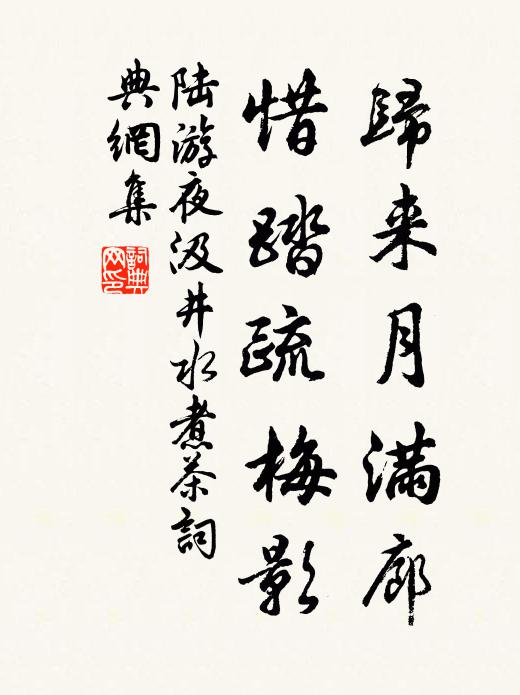 歸来月滿廊
惜踏疏梅影
陆游夜汲井水煮茶詞
典網集
詞典
网印